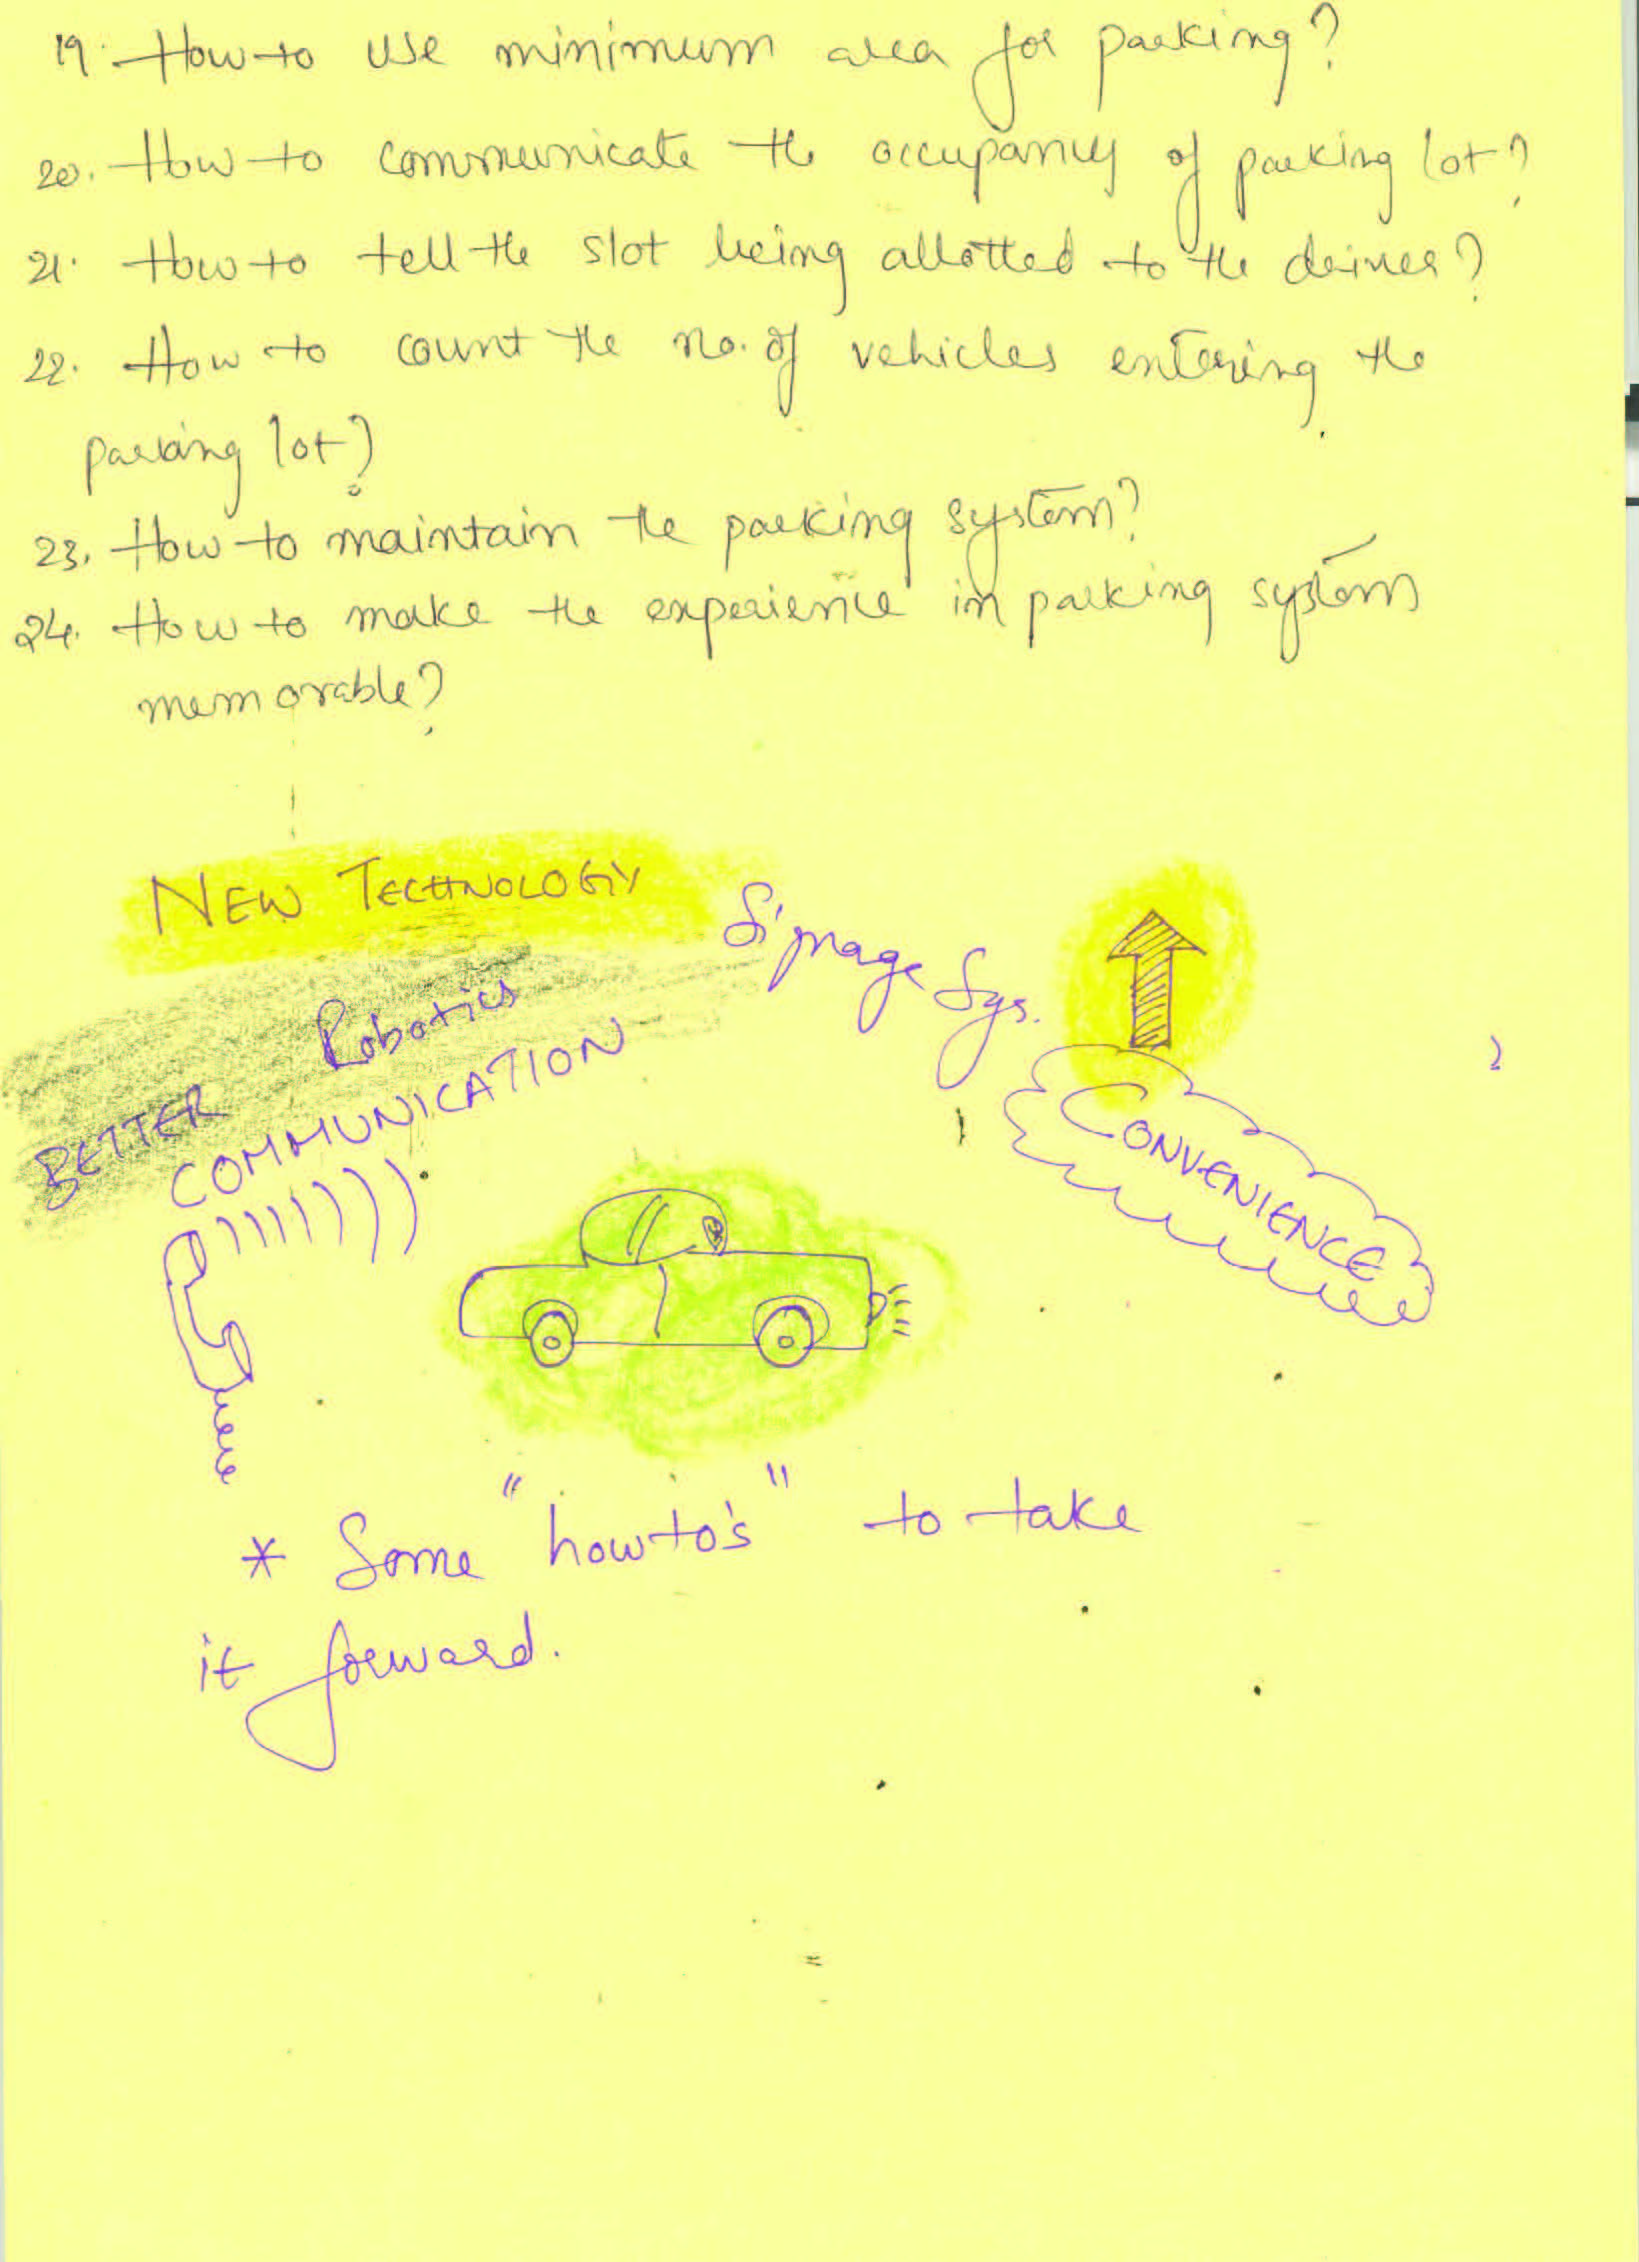 19. How to use minimum area for parking?
20. How to communicate the occupancy of parking lot?
21. How to tell the slot being allotted to the driver?
22. How to count the no. of vehicles entering the
parking lot?
23. How to maintain the parking system?
24. How to make the experience in parking system
memorable?
NEW TECHNOLOGY
Signage Sys.
Robotics
BETTER
COMMUNICATION
CONVENIENCE
* Some "how to's" to take
it forward.